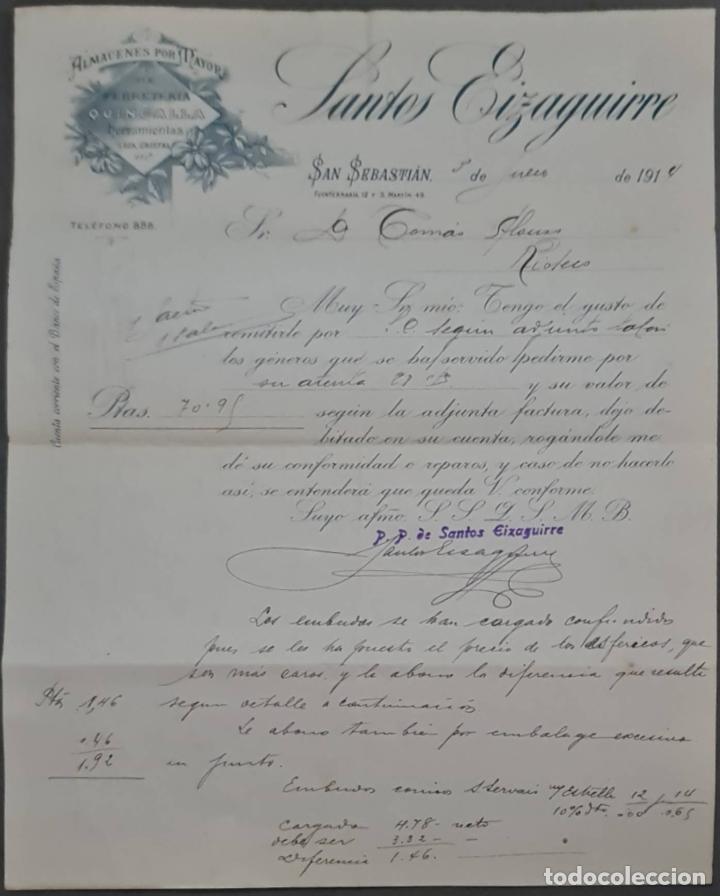 ALMACENES POR MAYOR
DE
FERRETERÍA
QUINCALLA
Herramientas
LOZA, CRISTAL
Santos Eizaguirre
SAN SEBASTIÁN, 3 de de 1914
FUENTERRABÍA, 12 Y S. MARTÍN 49.
TELÉFONO 888.
Sr. D. Tomás Alonso
Rioseco
Cuenta corriente con el Banco de España
Muy Sr. mío: Tengo el gusto de
remitirle por F.C. segun adjunto talon
los géneros que se ha servido pedirme por
su atenta y su valor de
Ptas. 70.95 según la adjunta factura, dejo de-
bitado en su cuenta, rogándole me
dé su conformidad o reparos, y caso de no hacerlo
así, se entenderá que queda V. conforme.
Suyo afmo. S. S. Q. S. M. B.
P. P. de Santos Eizaguirre
Santos Eizaguirre
Los embudos se han cargado confundidos
pues se les ha puesto el precio de los esfericos, que
son más caros, y le abono la diferencia que resulte
Pts 1,46 segun detalle a continuación
Le abono también por embalage excesivo
0.46
1.92 en junto.
Embudos conicos 12 14
10% dto.
Cargado 4.78 - neto
debe ser 3.32 -
Diferencia 1.46.
todocoleccion